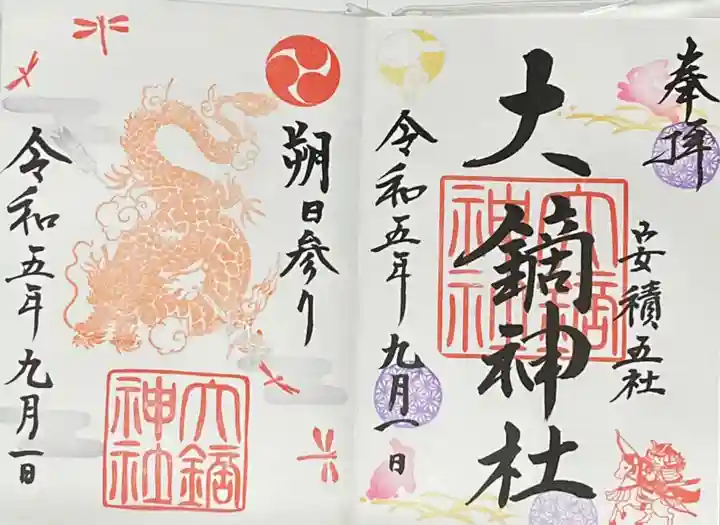 奉拝
安積五社
大鏑神社
大鏑神社
令和五年九月一日
朔日参り
令和五年九月一日
大鏑神社